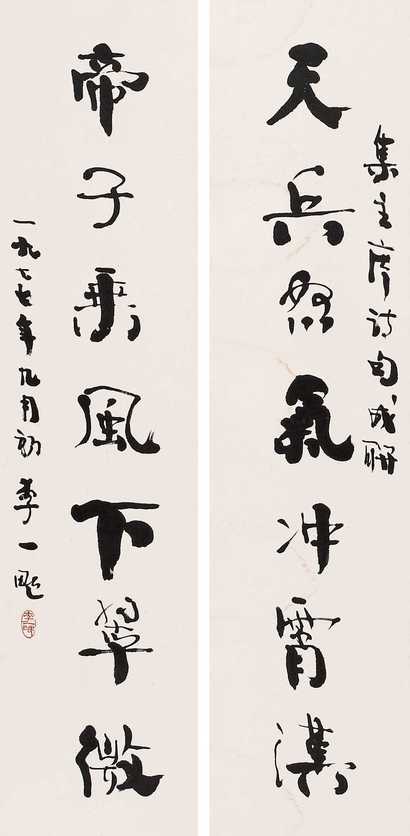 集主席诗句成聯
天兵怒氣冲霄漢
帝子乘風下翠微
一九七七年九月初 李一氓